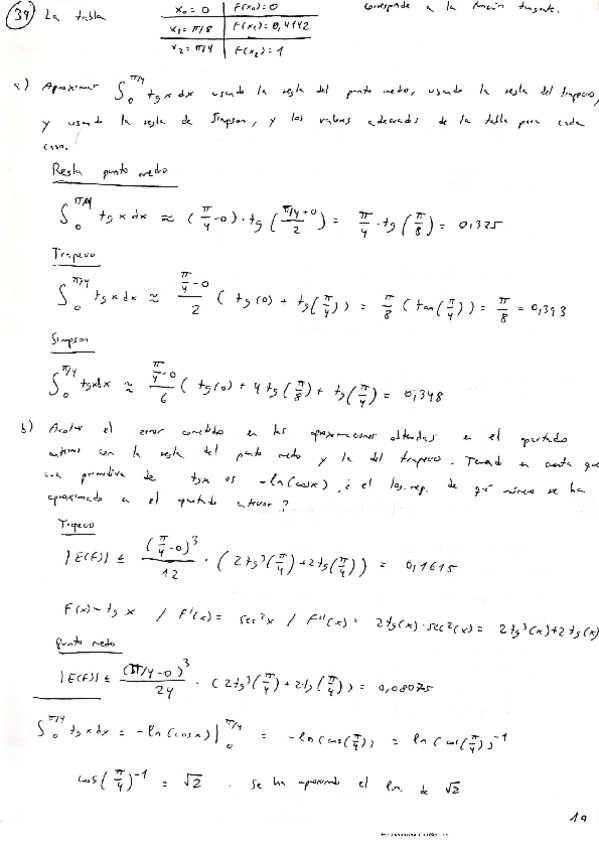 39 La tabla x₀ = 0 | f(x₀) = 0 corresponde a la función tangente.
x₁ = π/8 | f(x₁) = 0,4142
x₂ = π/4 | f(x₂) = 1
a) Aproximar ∫₀^π/4 tg x dx usando la regla del punto medio, usando la regla del trapecio,
y usando la regla de Simpson, y los valores adecuados de la tabla para cada
caso.
Regla punto medio
∫₀^π/4 tg x dx ≈ (π/4 - 0) · tg((π/4 + 0)/2) = π/4 · tg(π/8) = 0,325
Trapecio
∫₀^π/4 tg x dx ≈ (π/4 - 0)/2 (tg(0) + tg(π/4)) = π/8 (tan(π/4)) = π/8 = 0,393
Simpson
∫₀^π/4 tgx dx ≈ (π/4 - 0)/6 (tg(0) + 4 tg(π/8) + tg(π/4)) = 0,348
b) Acotar el error cometido en las aproximaciones obtenidas en el apartado
anterior con la regla del punto medio y la del trapecio. Teniendo en cuenta que
una primitiva de tgx es -ln(cosx), ¿el log. nep. de qué número se ha
aproximado en el apartado anterior?
Trapecio
|E(f)| ≤ (π/4 - 0)³/12 · (2 tg³(π/4) + 2 tg(π/4)) = 0,1615
f(x) = tg x / f'(x) = sec²x / f''(x) = 2tg(x)·sec²(x) = 2tg³(x)+2tg(x)
punto medio
|E(f)| ≤ (π/4 - 0)³/24 · (2tg³(π/4) + 2tg(π/4)) = 0,08075
∫₀^π/4 tg x dx = -ln(cosx)|₀^π/4 = -ln(cos(π/4)) = ln(cos(π/4))⁻¹
cos(π/4)⁻¹ = √2 . Se ha aproximado el ln. de √2
19